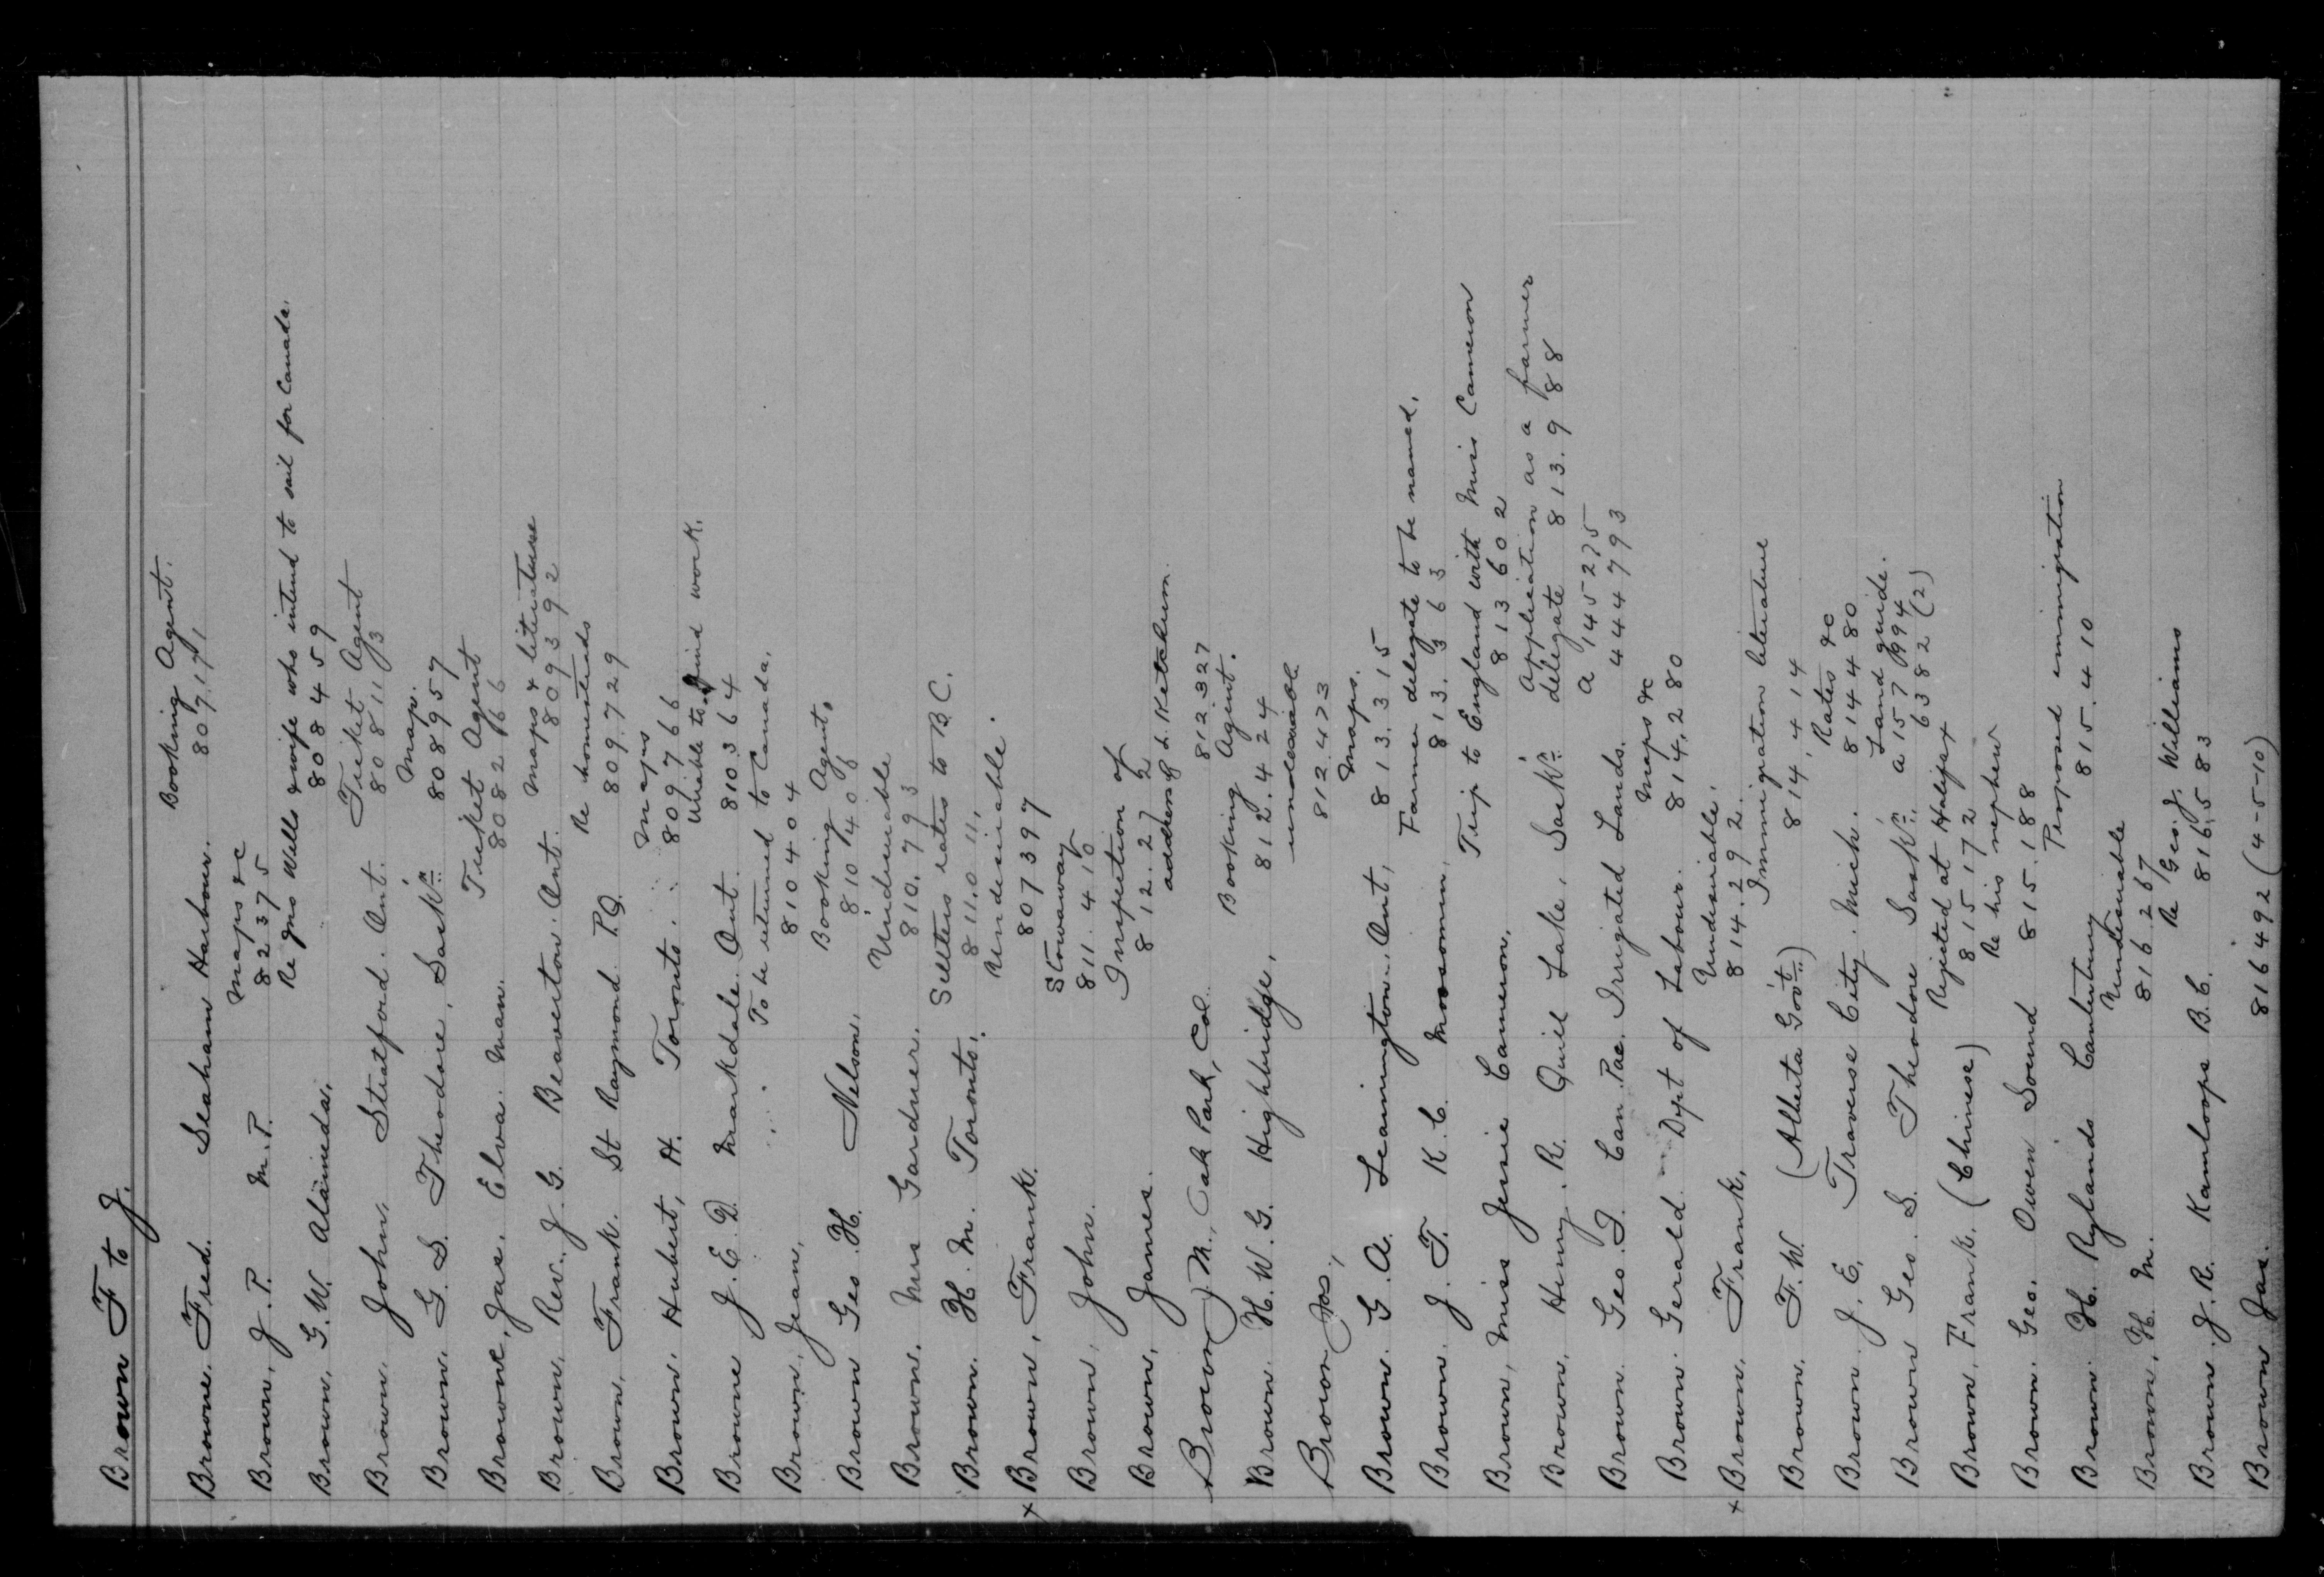 Brown F to J.
Booking Agent.
Browne. Fred. Seaham Harbour. 807171
Maps &c
Brown, J. P. M.P. 82375
Re Jno Wells & wife who intend to sail for Canada.
Brown, G. W. Alameda, 808459
Ticket Agent
Brown. John, Stratford. Ont. 808113
Maps.
Brown, G. S. Theodore, Sask'n 808957
Ticket Agent
Browne, Jas. Elva. Man. 808266
Maps & literature
Brown, Rev. J. G. Beaverton. Ont. 809392
Re homesteads
Brown, Frank. St Raymond P.Q. 809.729
Maps
Brown. Hubert, H. Toronto. 809766
Unable to find work.
Browne J. E. D. Markdale. Ont. 810364
To be returned to Canada.
Brown, Jean, 810404
Booking Agent.
Brown Geo. H. Nelson. 810406
Undesirable
Brown, Mrs Gardner. 810.793
Settlers rates to B.C.
Brown. H. M. Toronto. 811.011.
Undesirable.
x Brown, Frank. 807397
Stowaway
Brown, John. 811.410
Inspection of
Brown, James. 812.272
address of L. Ketchum.
Brown J M., Oak Park, Cal. 812.327
Booking Agent.
Brown. H. W. G. Highbridge, 812.424
undesirable
Brown Jos, 812.473
Maps.
Brown. G. A. Leamington, Ont, 813.315
Farmer delegate to be named,
Brown. J. T. K.C. Moosomin, 813.363
Trip to England with Miss Cameron
Brown, Miss Jessie Cameron, 813602
Application as a farmer
Brown, Henry. R. Quill Lake, Sask'n delegate 813.988
a 145275
Brown. Geo. J. Can. Pac. Irrigated Lands. 444793
Maps &c
Brown. Gerald Dept of Labour. 814.280
Undesirable.
x Brown. Frank, 814.292.
Immigration literature
Brown, F. W. (Alberta Gov't) 814,414
Rates &c
Brown. J. E. Traverse City. Mich. 814480
Land guide.
Brown Geo. S. Theodore Sask'n. a 157994
6382 (2)
Rejected at Halifax
Brown, Frank. (Chinese) 815172
Re his nephew
Brown. Geo. Owen Sound 815.188
Proposed immigration
Brown. H. Rylands Canterbury 815.410
Undesirable
Brown, H. M. 816267
Re Geo. J. Williams
Brown. J. R. Kamloops B.C. 816,583
Brown Jas. 816492 (4-5-10)